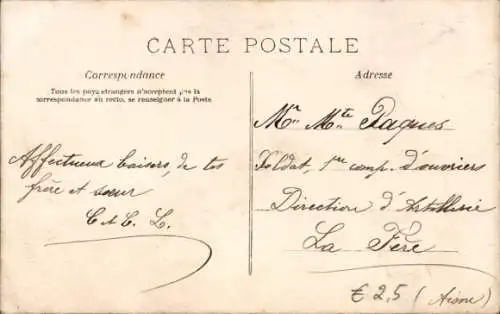 CARTE POSTALE
Correspondance
Tous les pays étrangers n'acceptent pas la
correspondance au recto, se renseigner à la Poste
Affectueux baisers, de tes
frère et sœur
E et E. L.
Adresse
Mr. Mte Paques
Soldat, 1re comp. d'ouvriers
Direction d'Artillerie
La Fère
€ 2,5 (Aisne)